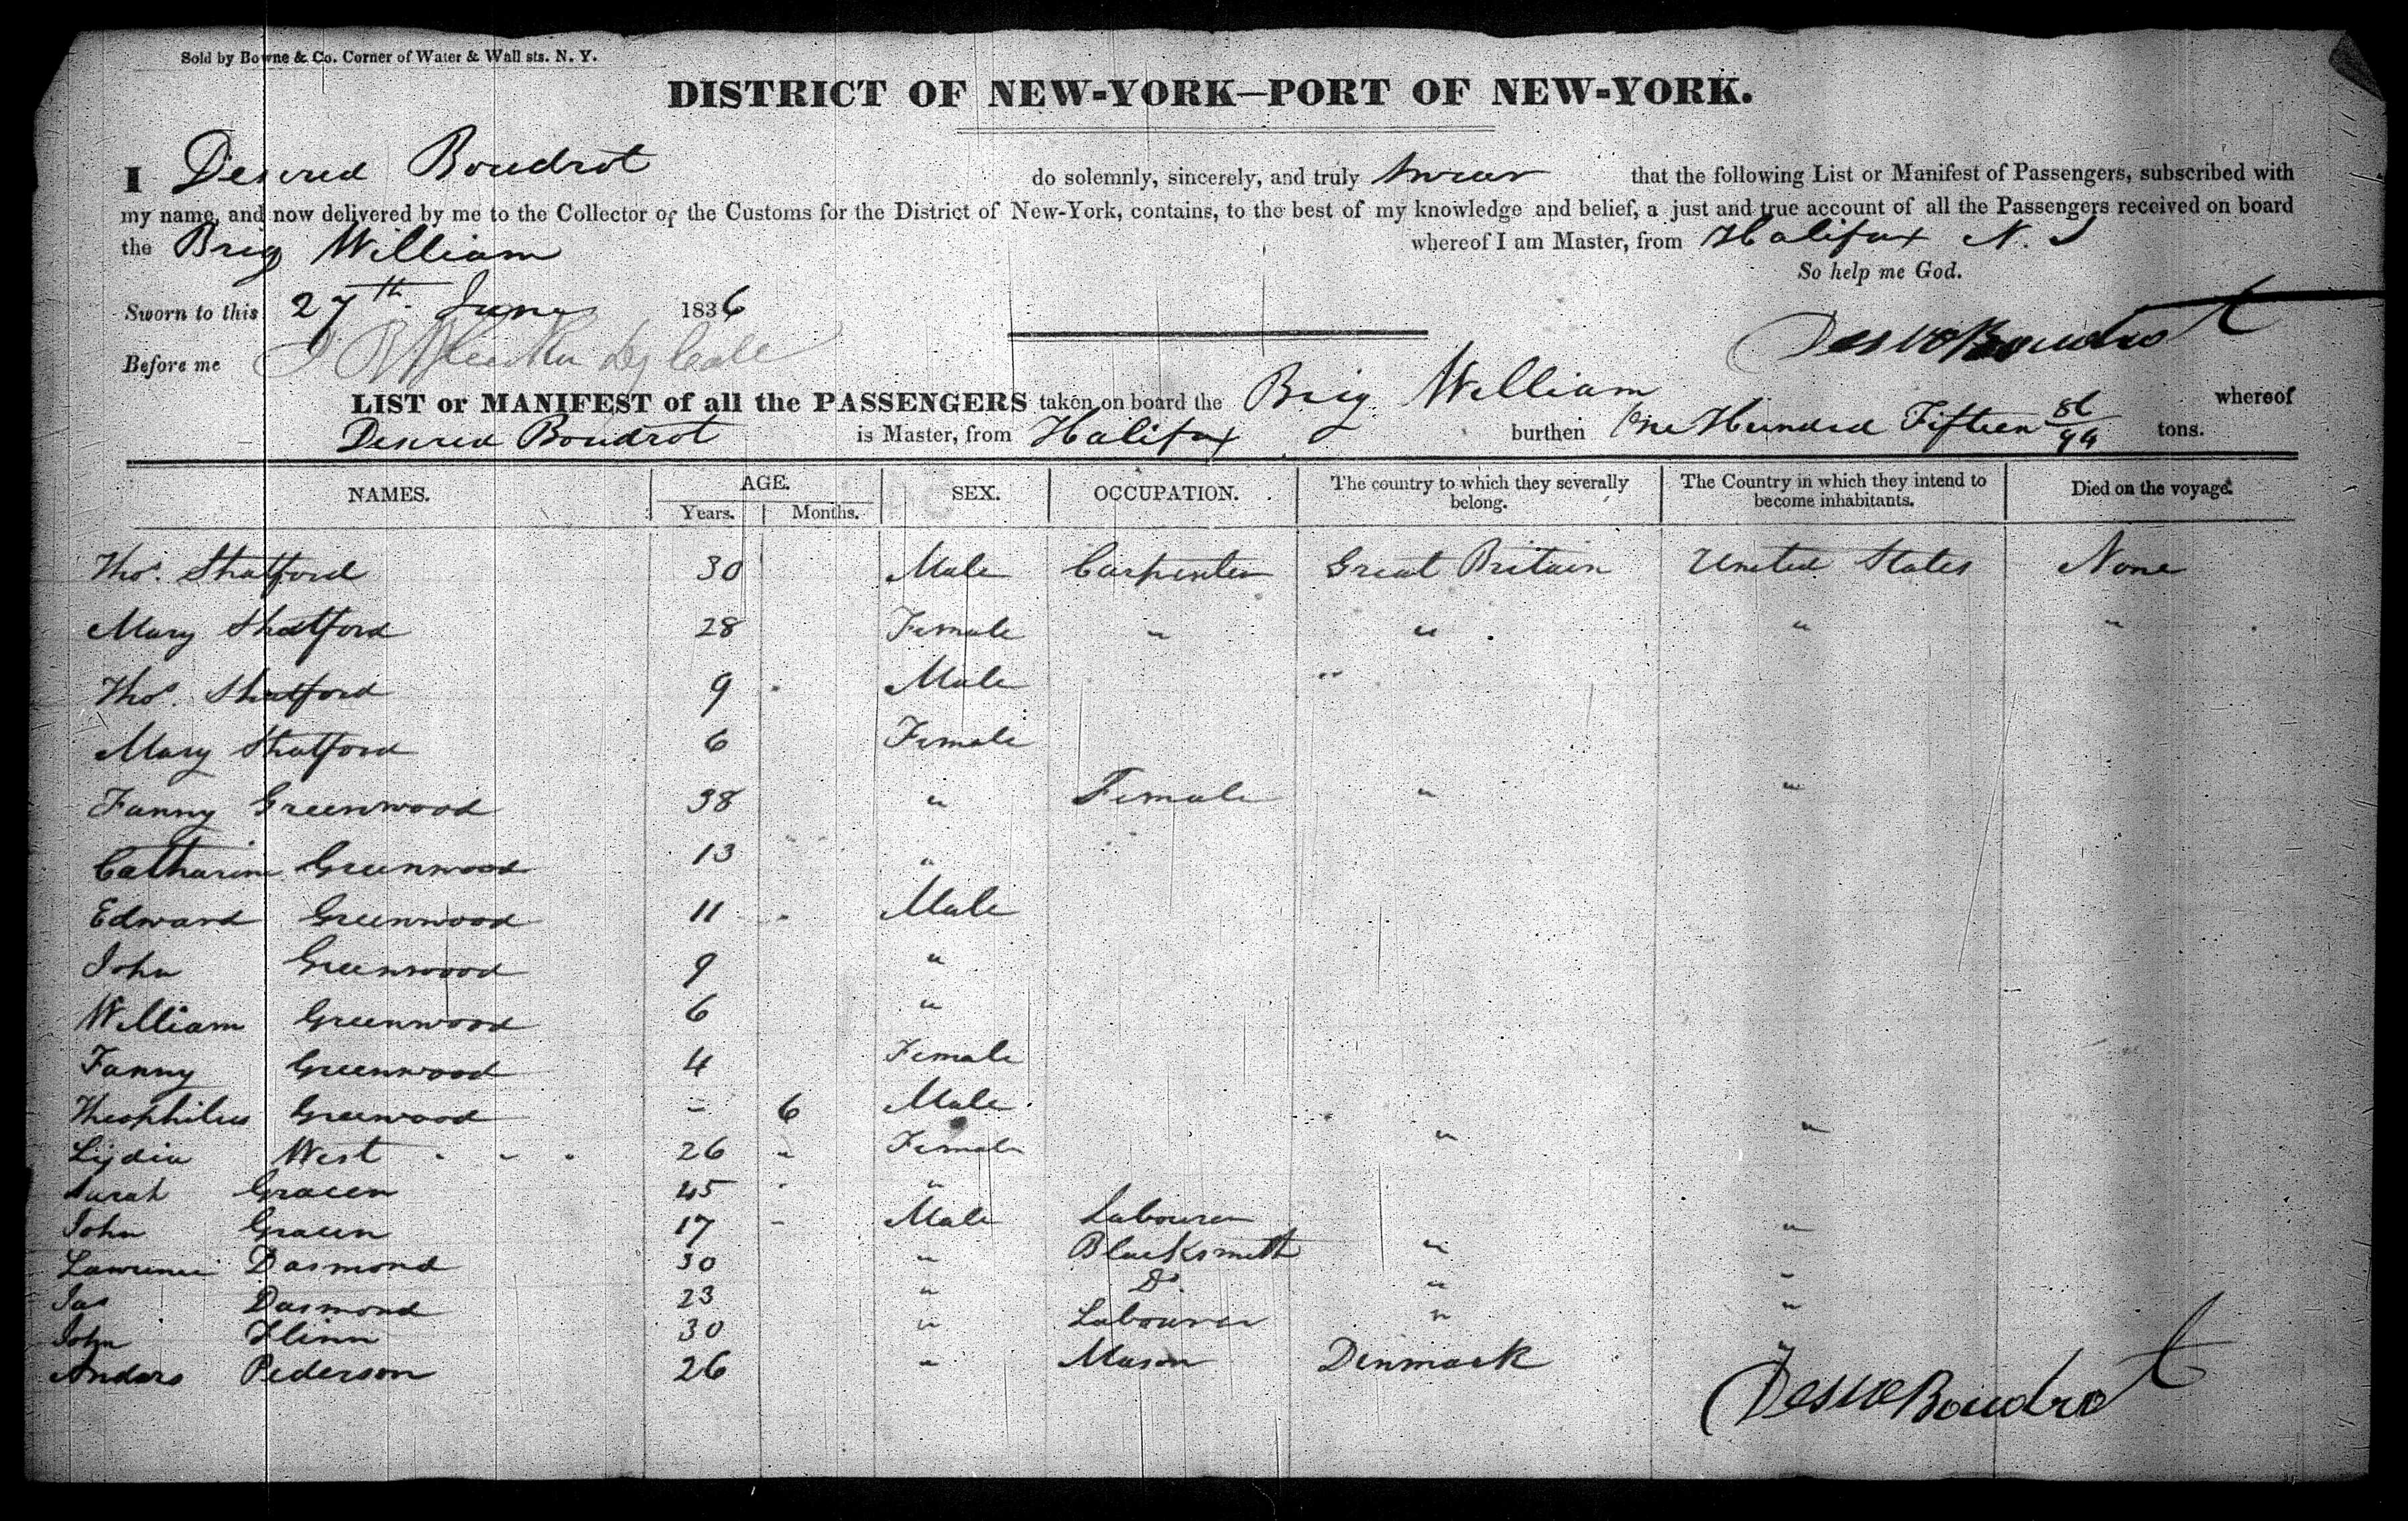 Sold by Bowne & Co. Corner of Water & Wall sts. N. Y.
DISTRICT OF NEW-YORK—PORT OF NEW-YORK.
I Desired Boudrot do solemnly, sincerely, and truly swear that the following List or Manifest of Passengers, subscribed with
my name, and now delivered by me to the Collector of the Customs for the District of New-York, contains, to the best of my knowledge and belief, a just and true account of all the Passengers received on board
the Brig William whereof I am Master, from Halifax N. S
So help me God.
Sworn to this 27th June 1836
Boudrot
Before me
LIST or MANIFEST of all the PASSENGERS taken on board the Brig William whereof
Desired Boudrot is Master, from Halifax burthen One Hundred Fifteen 86/94 tons.
NAMES. AGE. Years. Months. SEX. OCCUPATION. The country to which they severally belong. The Country in which they intend to become inhabitants. Died on the voyage.
Thos. Shatford 30 Male Carpenter Great Britain United States None
Mary Shatford 28 Female " " " "
Thos. Shatford 9 Male "
Mary Shatford 6 Female
Fanny Greenwood 38 " Female " "
Catharine Greenwood 13 "
Edward Greenwood 11 Male
John Greenwood 9 "
William Greenwood 6 "
Fanny Greenwood 4 Female
Theophilus Greenwood - 6 Male
Lydia West 26 " Female " "
Sarah Gracen 45 "
John Gracen 17 - Male Labourer "
Lawrence Dasmond 30 " Blacksmith "
Jas Dasmond 23 " Do. " "
John Flinn 30 " Labourer " "
Anders Pederson 26 " Mason Denmark "
Boudrot